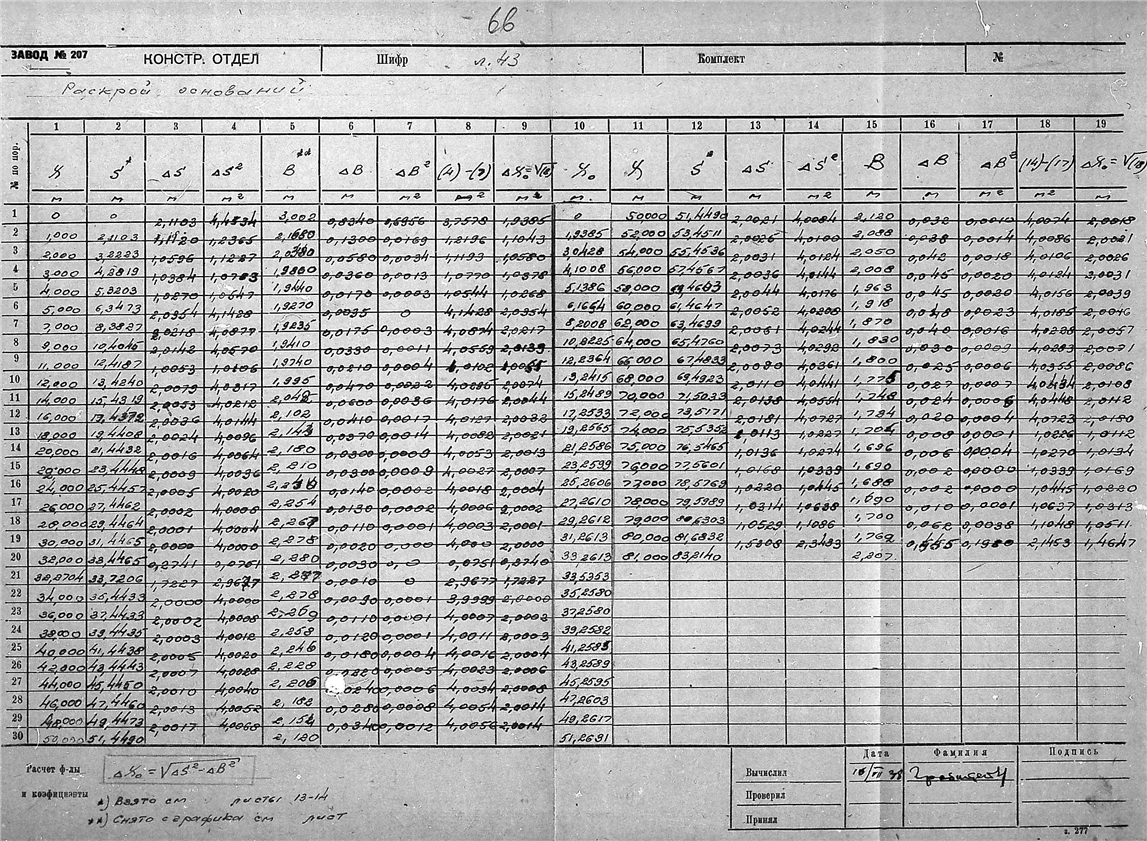 66
ЗАВОД № 207 КОНСТР. ОТДЕЛ Шифр л. 43 Комплект №
Раскрой оснований
№ по пор. 1 2 3 4 5 6 7 8 9 10 11 12 13 14 15 16 17 18 19
X S* ΔS ΔS² B** ΔB ΔB² (4)-(7) ΔX₀=√(8) X₀ X S* ΔS ΔS² B ΔB ΔB² (14)-(17) ΔX₀=√(18)
м м м м² м м м² м² м м м м м м² м м м² м² м
1 0 0 2,1103 4,4534 3,002 0,8340 0,6956 3,7578 1,9385 0 50,000 51,4490 2,0021 4,0084 2,120 0,032 0,0010 4,0074 2,0018
2 1,000 2,1103 1,1120 1,2365 0,1300 0,0169 1,2196 1,1043 1,9385 52,000 53,4511 2,0025 4,0100 2,088 0,038 0,0014 4,0086 2,0021
3 2,000 3,2223 1,0596 1,1227 0,0580 0,0034 1,1193 1,0580 3,0428 54,000 55,4536 2,0031 4,0124 2,050 0,042 0,0018 4,0106 2,0026
4 3,000 4,2819 1,0384 1,0783 0,0360 0,0013 1,0770 1,0378 4,1008 56,000 57,4567 2,0036 4,0144 2,008 0,045 0,0020 4,0124 2,0031
5 4,000 5,3203 1,0270 1,0547 1,9440 0,0170 0,0003 1,0544 1,0268 5,1386 58,000 59,4603 2,0044 4,0176 1,963 0,045 0,0020 4,0156 2,0039
6 5,000 6,3473 2,0354 4,1428 1,9270 0,0035 0 4,1428 2,0354 6,1654 60,000 61,4647 2,0052 4,0208 1,918 0,048 0,0023 4,0185 2,0046
7 7,000 8,3827 2,0218 4,0877 1,9235 0,0175 0,0003 4,0874 2,0217 8,2008 62,000 63,4699 2,0061 4,0244 1,870 0,040 0,0016 4,0228 2,0057
8 9,000 10,4045 2,0142 4,0570 1,9410 0,0330 0,0011 4,0559 2,0139 10,2225 64,000 65,4760 2,0073 4,0292 1,830 0,030 0,0009 4,0283 2,0071
9 11,000 12,4187 1,0053 1,0106 1,9740 0,0210 0,0004 1,0102 1,0051 12,2364 66,000 67,4833 2,0090 4,0361 1,800 0,025 0,0006 4,0355 2,0086
10 12,000 13,4240 2,0079 4,0317 1,995 0,0470 0,0022 4,0295 2,0074 13,2415 68,000 69,4923 2,0110 4,0441 1,775 0,027 0,0007 4,0434 2,0108
11 14,000 15,4319 2,0053 4,0212 0,0600 0,0036 4,0176 2,0044 15,2489 70,000 71,5033 2,0138 4,0554 1,748 0,024 0,0006 4,0448 2,0112
12 16,000 17,4372 2,0036 4,0144 2,102 0,0410 0,0017 4,0127 2,0032 17,2533 72,000 73,5171 2,0181 4,0727 1,724 0,020 0,0004 4,0723 2,0180
13 18,000 19,4408 2,0024 4,0096 2,143 0,0370 0,0014 4,0082 2,0021 19,2565 74,000 75,5352 1,0113 1,0227 1,704 0,008 0,0001 1,0226 1,0112
14 20,000 21,4432 2,0016 4,0064 2,180 0,0300 0,0009 4,0053 2,0013 21,2586 75,000 76,5465 1,0136 1,0274 1,696 0,006 0,0004 1,0270 1,0134
15 22,000 23,4448 2,0009 4,0036 2,210 0,0300 0,0009 4,0027 2,0007 23,2599 76,000 77,5601 1,0168 1,0339 1,690 0,002 0,0000 1,0339 1,0169
16 24,000 25,4457 2,0005 4,0020 0,0140 0,0002 4,0018 2,0004 25,2606 77,000 78,5769 1,0220 1,0445 1,688 0,002 0,0000 1,0445 1,0220
17 26,000 27,4462 2,0002 4,0008 2,254 0,0130 0,0002 4,0006 2,0002 27,2610 78,000 79,5989 1,0314 1,0638 1,690 0,010 0,0001 1,0637 1,0313
18 28,000 29,4464 2,0001 4,0004 2,267 0,0110 0,0001 4,0003 2,0001 29,2612 79,000 80,6303 1,0529 1,1086 1,700 0,062 0,0038 1,1048 1,0511
19 30,000 31,4465 2,0000 4,0000 2,278 0,0020 0,000 4,0000 2,0000 31,2613 80,000 81,6832 1,5308 2,3433 1,762 0,445 0,1980 2,1453 1,4647
20 32,000 33,4465 0,2741 0,0751 2,280 0,0030 0 0,0751 0,2740 33,2613 81,000 83,2140 2,207
21 32,2704 33,7206 1,7227 2,9677 2,277 0,0010 0 2,9677 1,7227 33,5353
22 34,000 35,4433 2,0000 4,0000 2,278 0,0090 0,0001 3,9999 2,0000 35,2580
23 36,000 37,4433 2,0002 4,0008 2,269 0,0110 0,0001 4,0007 2,0002 37,2580
24 38,000 39,4435 2,0003 4,0012 2,258 0,0120 0,0001 4,0011 2,0003 39,2582
25 40,000 41,4438 2,0005 4,0020 2,246 0,0180 0,0004 4,0016 2,0004 41,2585
26 42,000 43,4443 2,0007 4,0028 2,228 0,0005 4,0023 2,0006 43,2589
27 44,000 45,4450 2,0010 4,0040 2,206 0,0240 0,0006 4,0034 2,0008 45,2595
28 46,000 47,4460 2,0013 4,0052 2,182 0,0280 0,0008 4,0054 2,0014 47,2603
29 48,000 49,4473 2,0017 4,0068 2,154 0,0340 0,0012 4,0056 2,0014 49,2617
30 50,000 51,4490 2,120 51,2631
Расчет ф-лы и коэфициенты ΔX₀=√ΔS²-ΔB²
*) Взято см листы 13-14
**) Снято с графика см лист
Дата Фамилия Подпись
Вычислил 16/VII 38
Проверил
Принял
з. 277